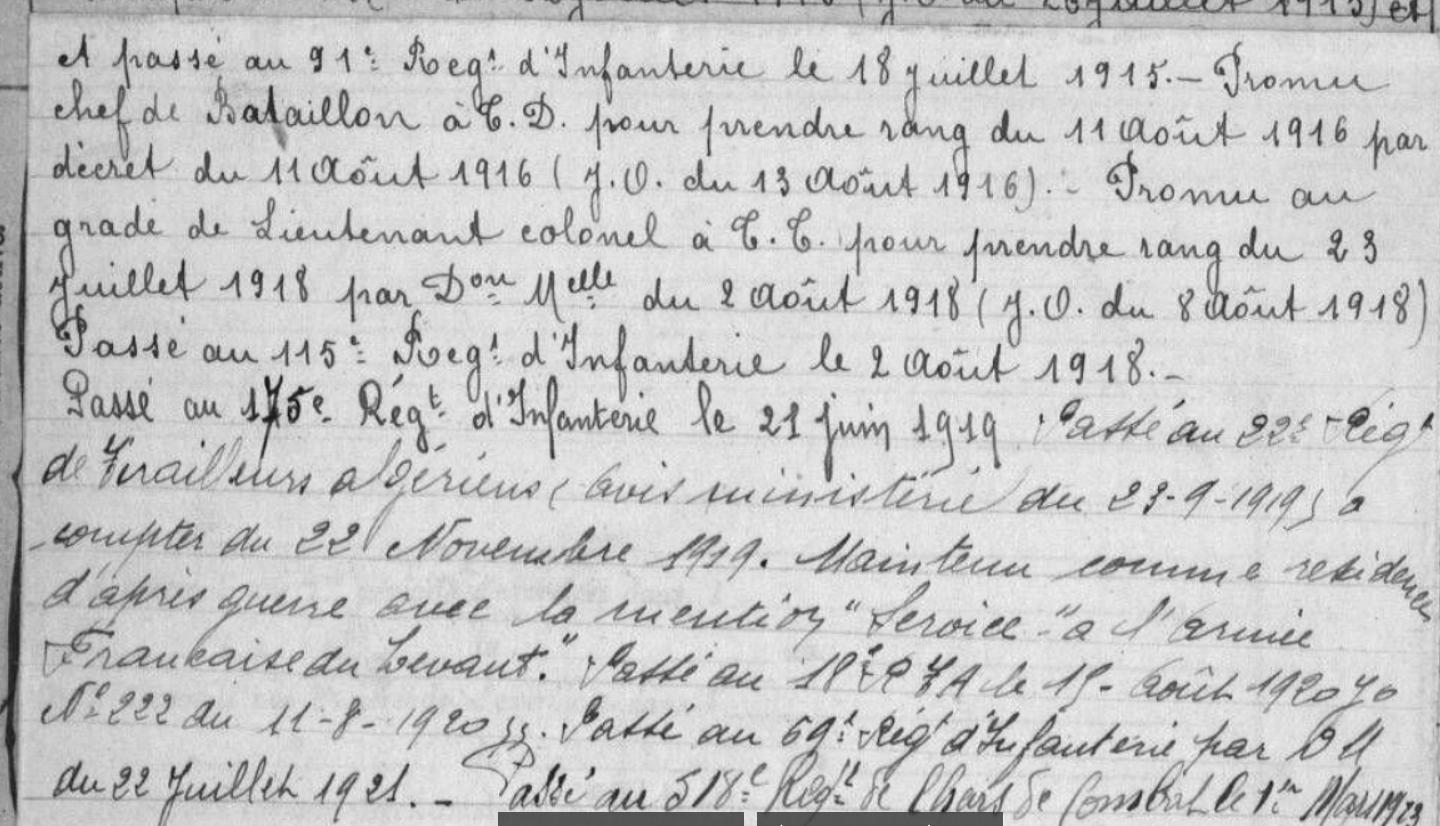 et passé au 91e Regt d'Infanterie le 18 juillet 1915.- Promu
chef de Bataillon à T.D. pour prendre rang du 11 Août 1916 par
décret du 11 Août 1916 (J.O. du 13 Août 1916).- Promu au
grade de Lieutenant colonel à T.T. pour prendre rang du 23
Juillet 1918 par Don Melle du 2 Août 1918 (J.O. du 8 Août 1918)
Passé au 115e Regt d'Infanterie le 2 Août 1918.-
Passé au 175e Régt d'Infanterie le 21 juin 1919 Passé au 22e Régt
de Tirailleurs algériens (avis ministérie du 23-9-1919) a
compter du 22 Novembre 1919. Maintenu comme residence
d'après guerre avec la mention "Service - a l'armée
Francaise du Levant." Passé au 18e R T A le 15 - Août 1920 JO
No 222 du 11-8-1920 Passé au 69e Régt d'Infanterie par D M
du 22 Juillet 1921. - Passé au 518e Régt de Chars de Combat le 1er Mars 1923